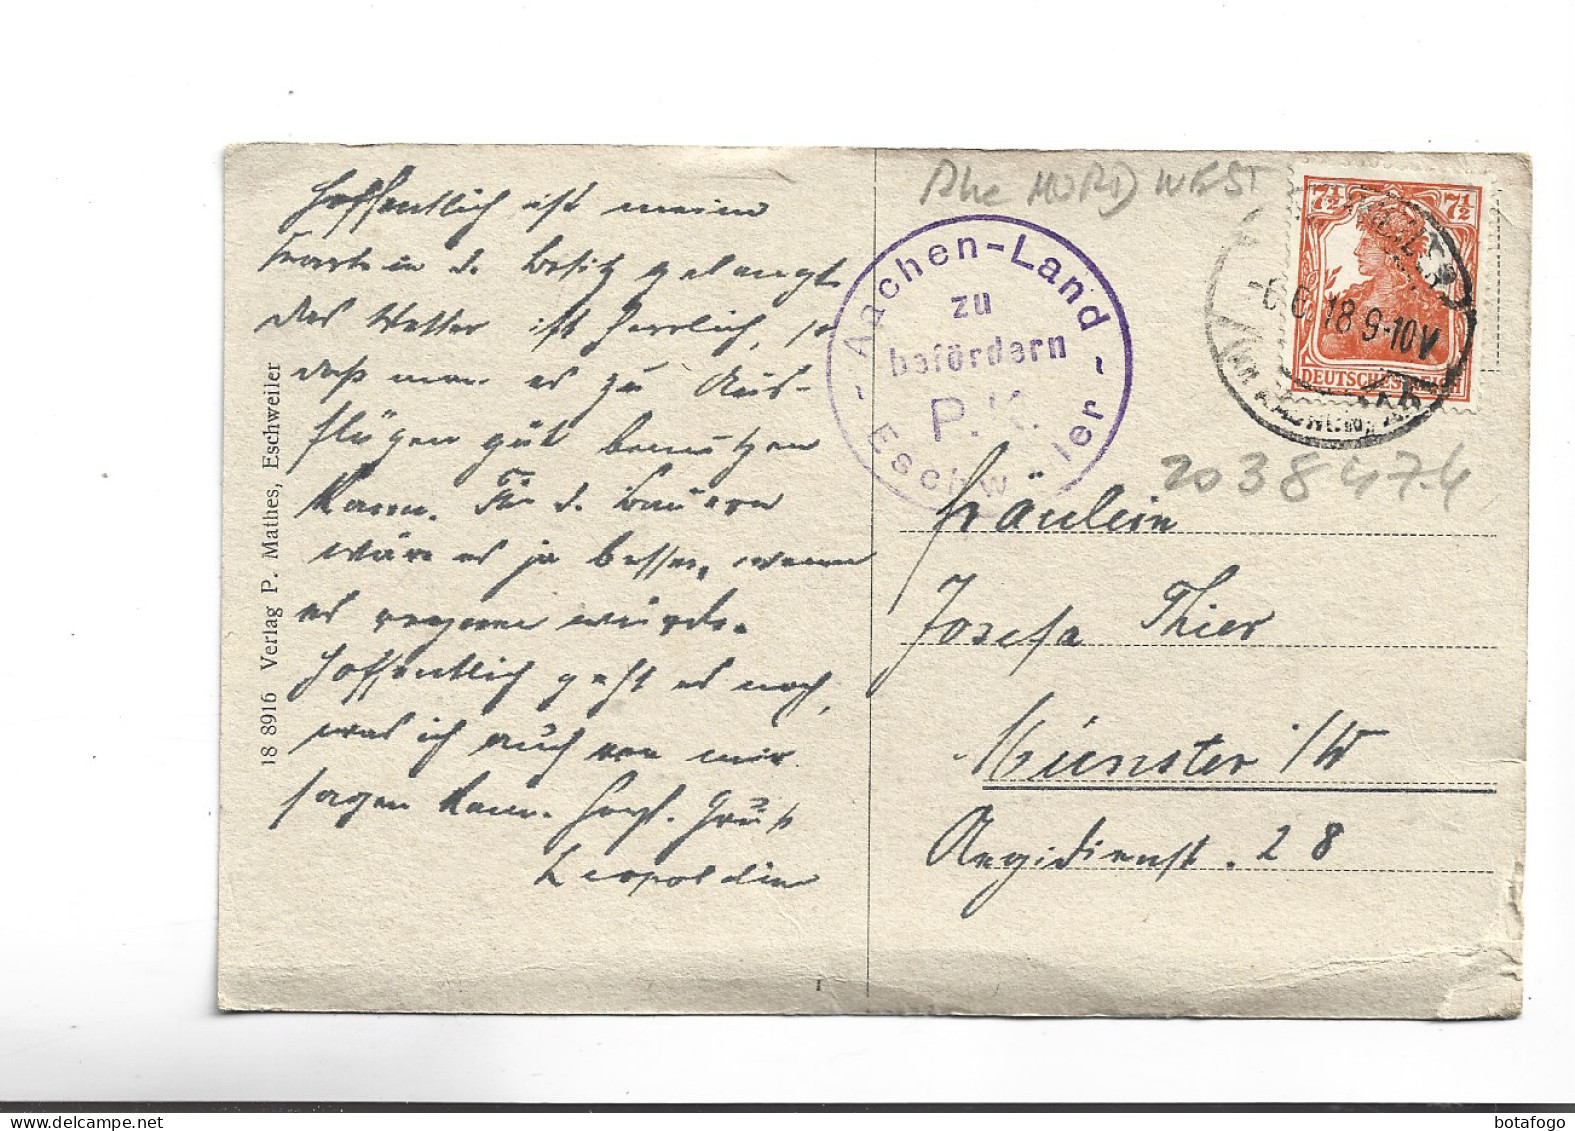 Hoffentlich ist meine
Karte in d. Besitz gelangt.
Das Wetter ist herrlich, so
daß man es zu Aus-
flügen gut benutzen
kann. Für d. Bauern
wäre es ja besser, wenn
es regnen würde.
Hoffentlich geht es noch,
was ich auch von mir
sagen kann. Herzl. Gruß
Leopoldine
18 8916 Verlag P. Mathes, Eschweiler
NORD WEST
Aachen-Land
zu
befördern
P.K.
Eschweiler
7½ 7½
6 18 9-10V
DEUTSCHES REICH
2038474
Fräulein
Josefa Thier
Münster i/W
Aegidienst. 28
botafogo